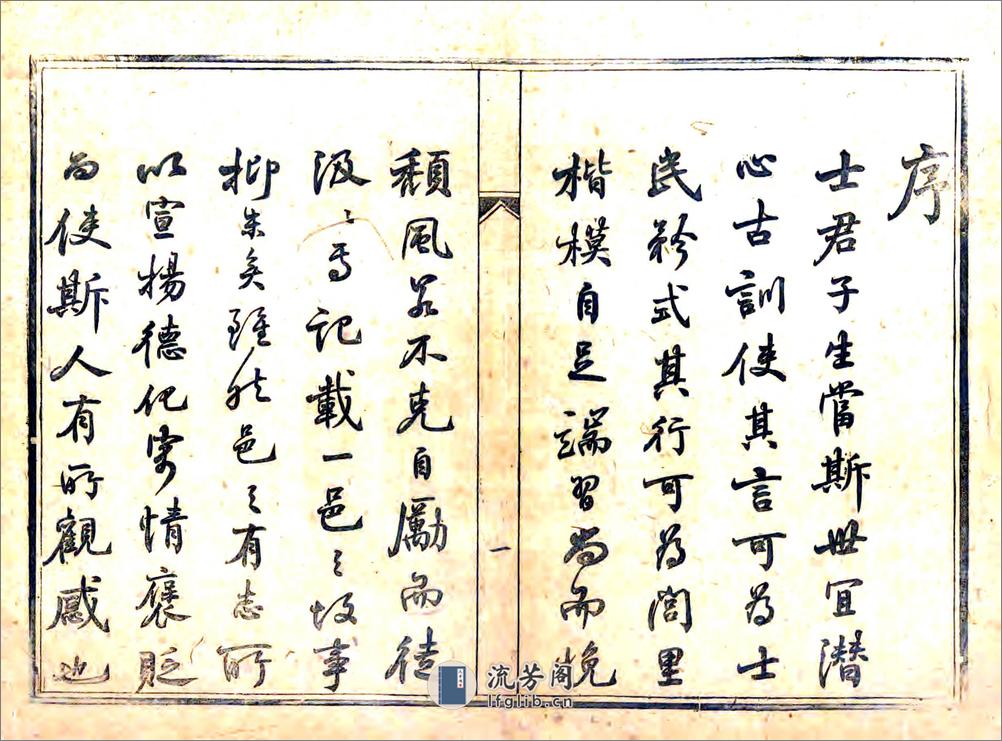 序
士君子生當斯世宜潛
心古訓使其言可為士
民矜式其行可為閭里
楷模自足端習尚而挽
頹風若不克自勵而徒
汲〻焉記載一邑之故事
抑末矣雖然邑之有志所
以宣揚德化寄情褒貶
而使斯人有所觀感也
一
流芳阁
lfglib.cn